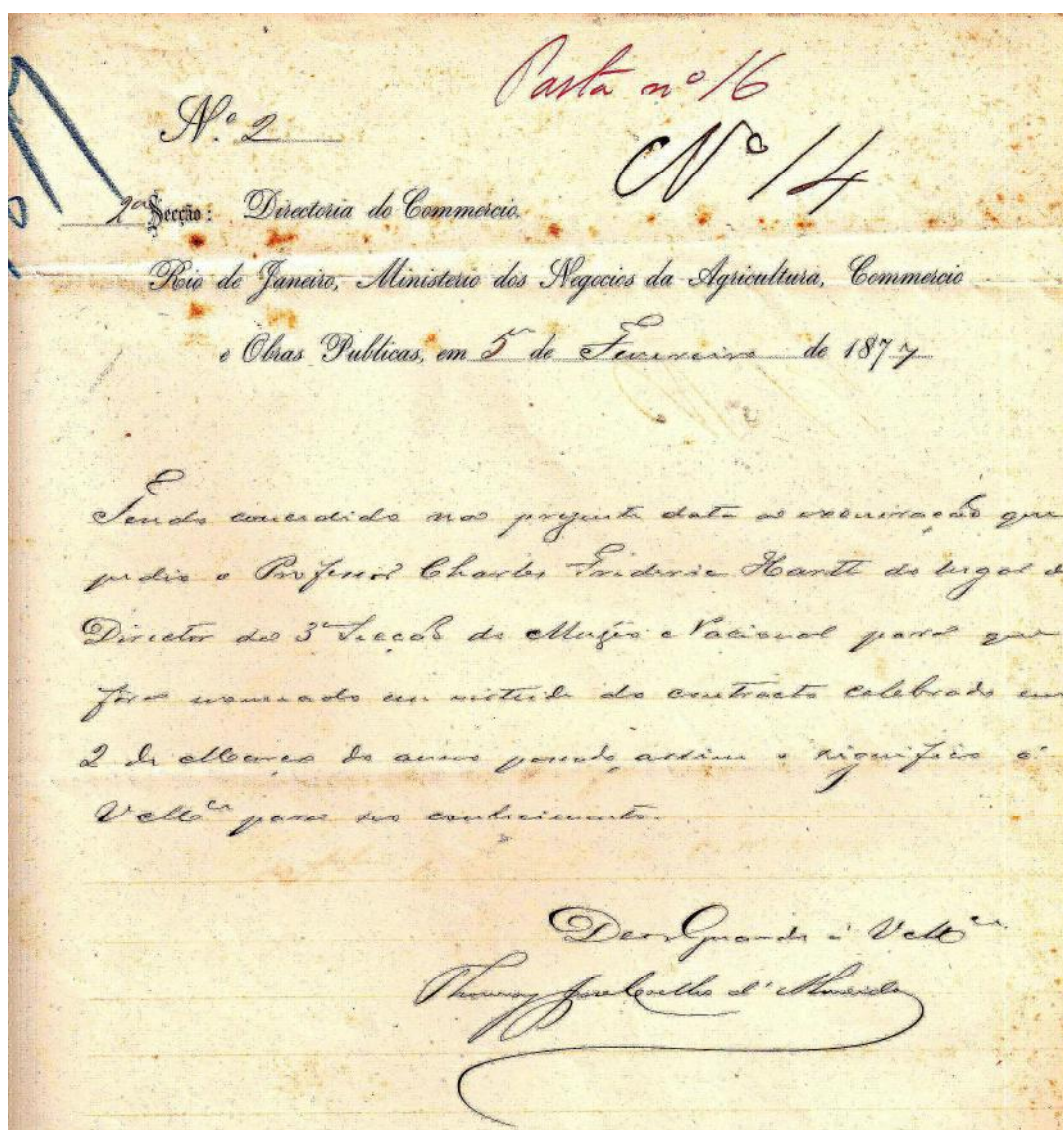 Pasta nº 16
N.º 2
Nº 14
2ª Secção: Directoria do Commercio.
Rio de Janeiro, Ministerio dos Negocios da Agricultura, Commercio
e Obras Publicas, em 5 de Fevereiro de 1877
Tendo concedido na presente data a exoneração que
pedio o Professor Charles Frideric Hartt do lugar de
Director da 3ª Secção do Muzeo Nacional para que
fôra nomeado em virtude do contracto celebrado em
2 de Março do anno passado, assim o significo á
VMce para seo conhecimento.
Deos Guarde á VMce
José Coelho d'Almeida